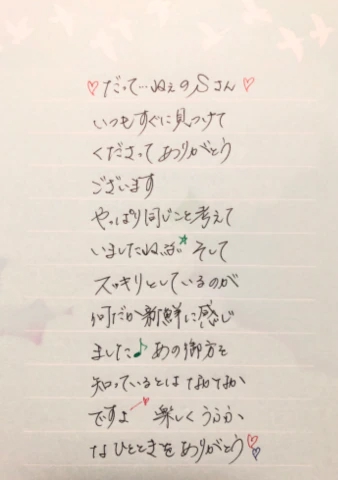 ♡だって…ねぇのSさん♡
いつもすぐに見つけて
くださってありがとう
ございます
やっぱり同じこと考えて
いましたね そして
スッキリとしているのが
何だか新鮮に感じ
ました♪あの御方を
知っているとはなかなか
ですよ 楽しくうふふ
なひとときをありがとう♡♡